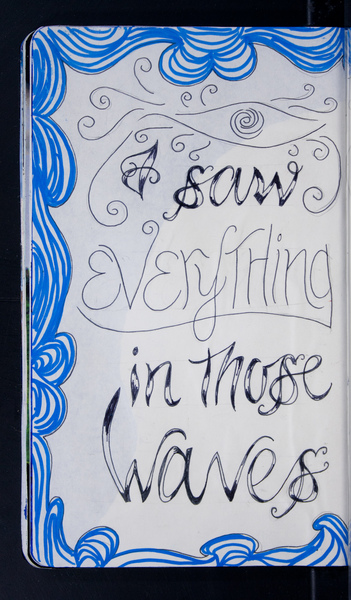 I saw
EVERyTHing
in Those
waves